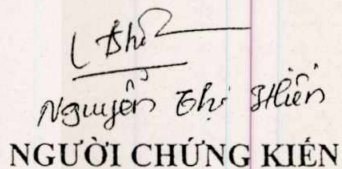 Nguyễn Thị Hiền
NGƯỜI CHỨNG KIẾN